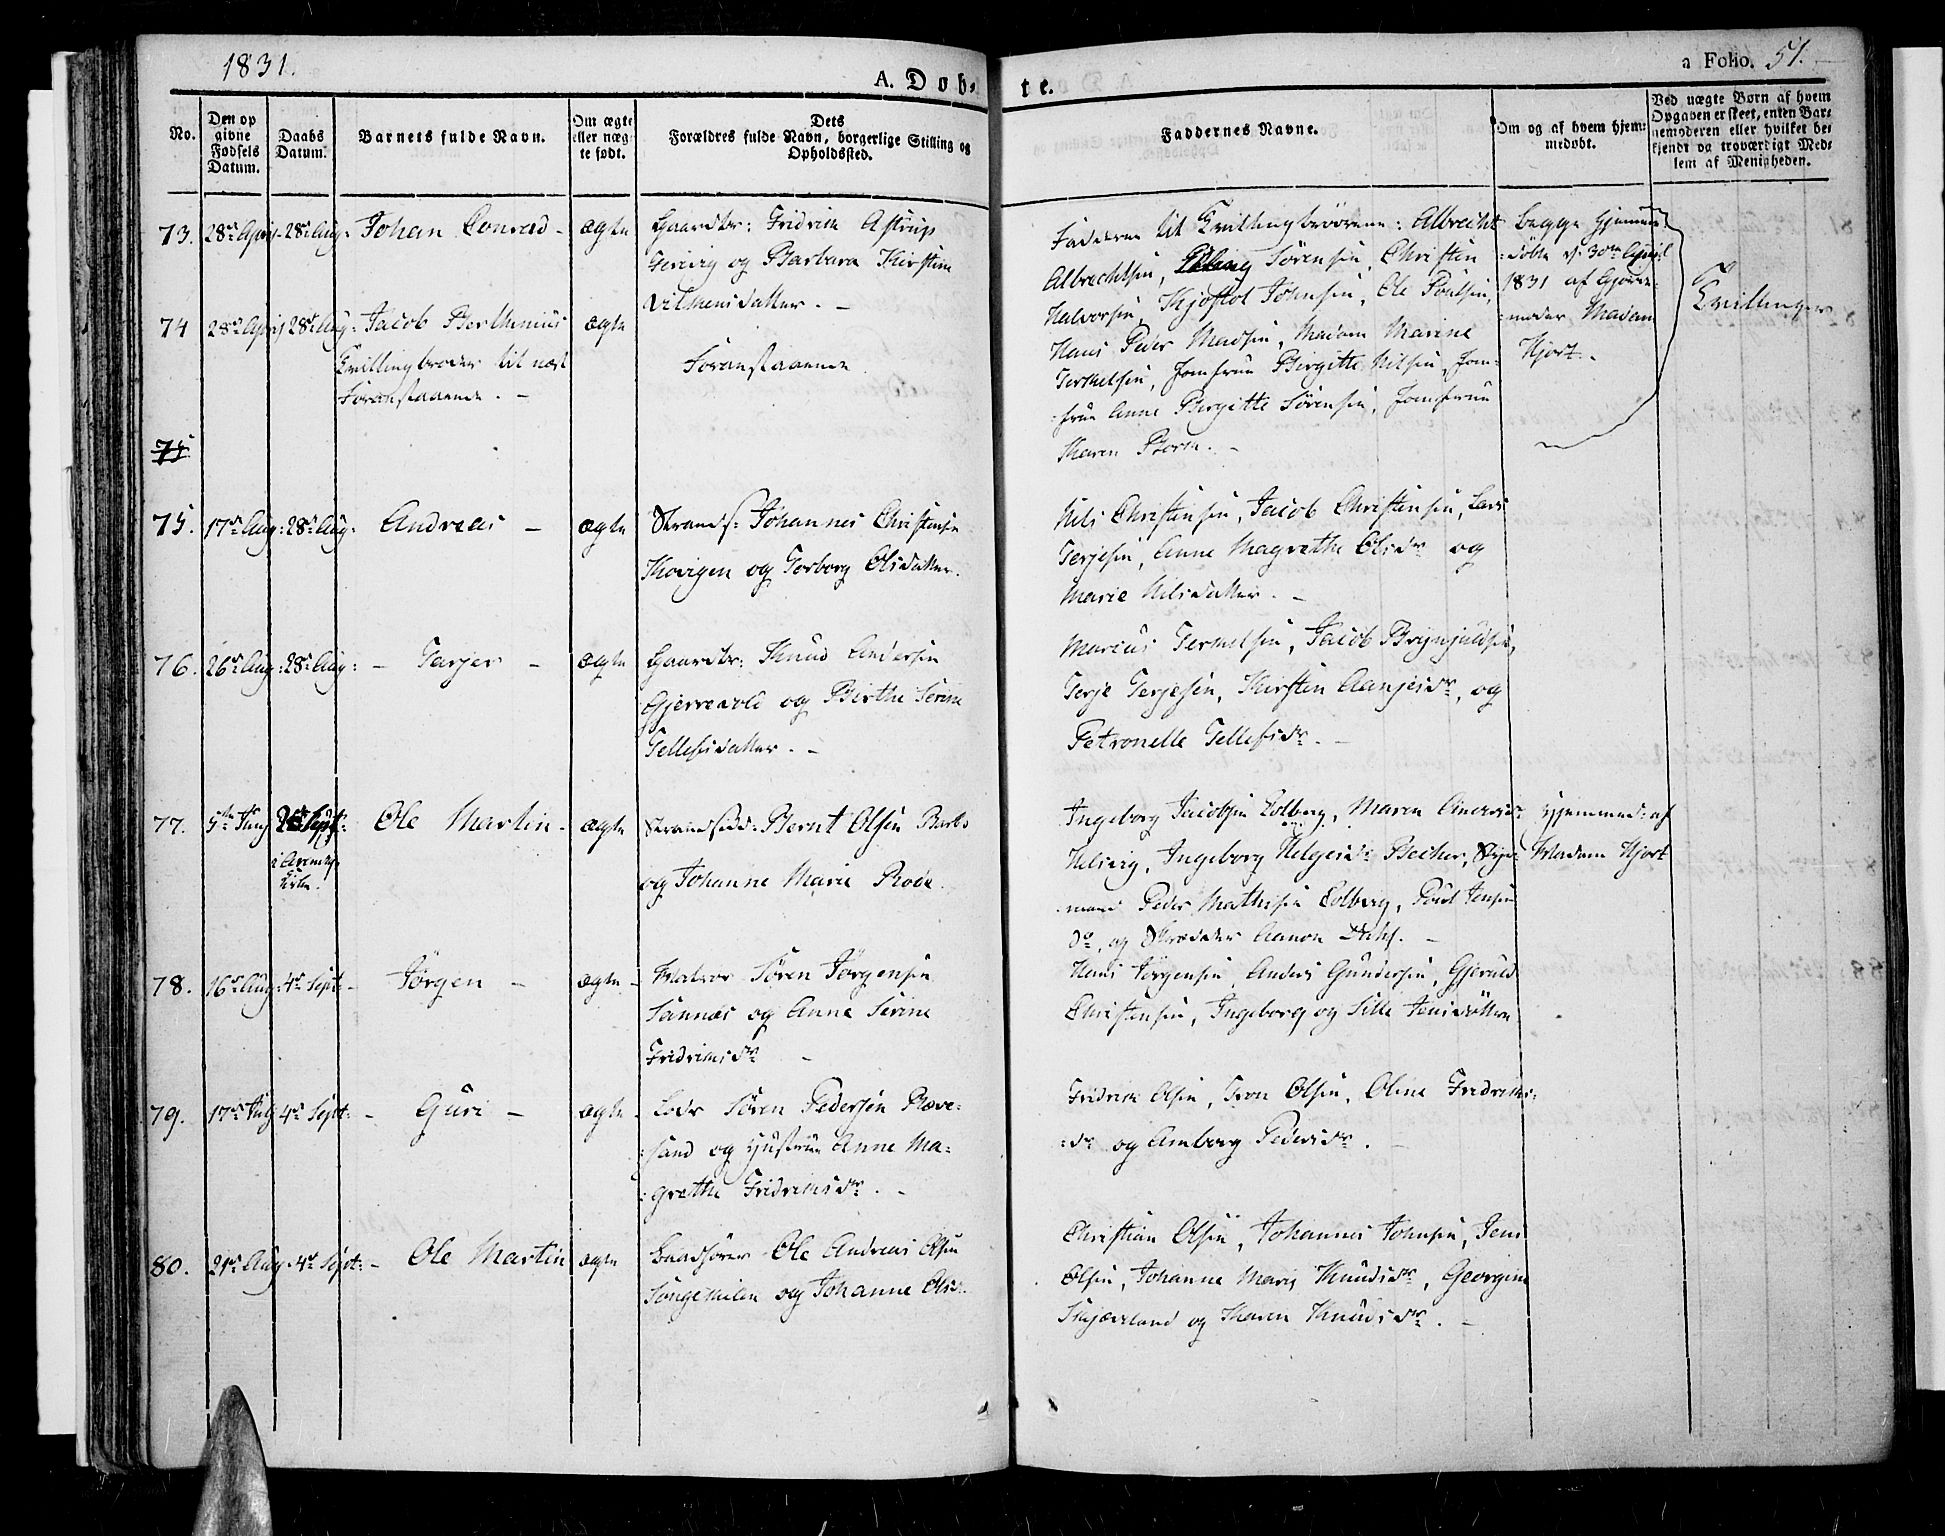 1831.
A. Døb-
te.
a Folio. 51.
No.
Den op
givne
Fødsels
Datum.
Daabs
Datum.
Barnets fulde Navn.
Om ægte
eller uæg-
te født.
Dets
Forældres fulde Navn, borgerlige Stilling og
Opholdssted.
Faddernes Navne.
Om og af hvem hjem-
medøbt.
Ved uægte Børn af hvem
Opgaven er skeet, enten Bar-
nemoderen eller hvilket be-
kjendt og troværdigt Med-
lem af Menigheden.
73. 28de April 28de Aug: Johan Conrad - ægte
Gaardbr: Fridrich Astrup
og Barbara Kirstine
74 28de April 28de Aug: Jacob Berthinius ægte
Tvillingbroder til næst
Foranstaaende. -
Foranstaaende
Fadderne til Tvillingbrødrene: Albrecht
Albrechtsen, Sørensen, Christen
Halvorsen, Kjøstol Johnsen, Ole Poulsen,
Hans Peder Madsen, Madam Marine
Terkelsen, Jomfrue Birgitte Nilsen, Jom-
frue Anne Birgitte Sørensen, Jomfrue
Maren Bork. -
Begge hjemme-
døbte d. 30te April
1831 af Gjorde-
moder Madam
Hjort. -
Tvillinger
75
75. 17de Aug: 28de Aug: Andreas - ægte
Strands: Johannes Christensen
Kovigen og Torborg Olsdatter.
Nils Christensen, Jacob Christensen, Lars
Terjesen, Anne Magrethe Olsdr og
Marie Nilsdatter. -
76. 26de Aug: 28de Aug: - Tarjer - ægte
Gaardbr: Knud Andersen
Gjerrevold og Birthe Serine
Tellefsdatter. -
Marius Terkelsen, Jacob Brynjuldsen,
Terje Terjesen, Kirsten Aanjesdr, og
Petronelle Tellefsdr. -
77. 5te Sept:
i Arendals
Kirke.
Ole Martin - ægte
Strandsidd: Bernt Olsen Barbo
og Johanne Marie Rode.
Ingeborg Jacobsen Colberg, Maren Andersdr
Ingeborg Helgesdr Becher, Styr-
mand Peder Mathisen Colberg, Poul Jensen
do, og Skræder Aanon Dahl. -
Hjemmed: af
Madam Hjort
78. 16de Aug: 4de Sept: - Jørgen - ægte -
Matros Søren Jørgensen
Sannæs og Anne Serine
Fridrichsdr -
Hans Jørgensen, Anders Gundersen, Gjeruld
Christensen, Ingeborg og Sille Jensdøttre
79. 17de 4de Sept: - Guri - ægte -
Lods Søren Pedersen Ræve-
sand og Hustrue Anne Ma-
grethe Fridrichsdr. -
Fridrich Olsen, Tron Olsen, Oline Fridrichs-
dr og Amborg Pedersdr. -
80. 21de Aug. 4de Sept: - Ole Martin ægte
Baadfører Ole Andreas Olsen
Songekilen og Johanne Olsd:
Christian Olsen, Johannes Johnsen, Jens
Olsen, Johanne Marie Knudsdr, Georgine
Skjærland og Karen Knudsdr. -